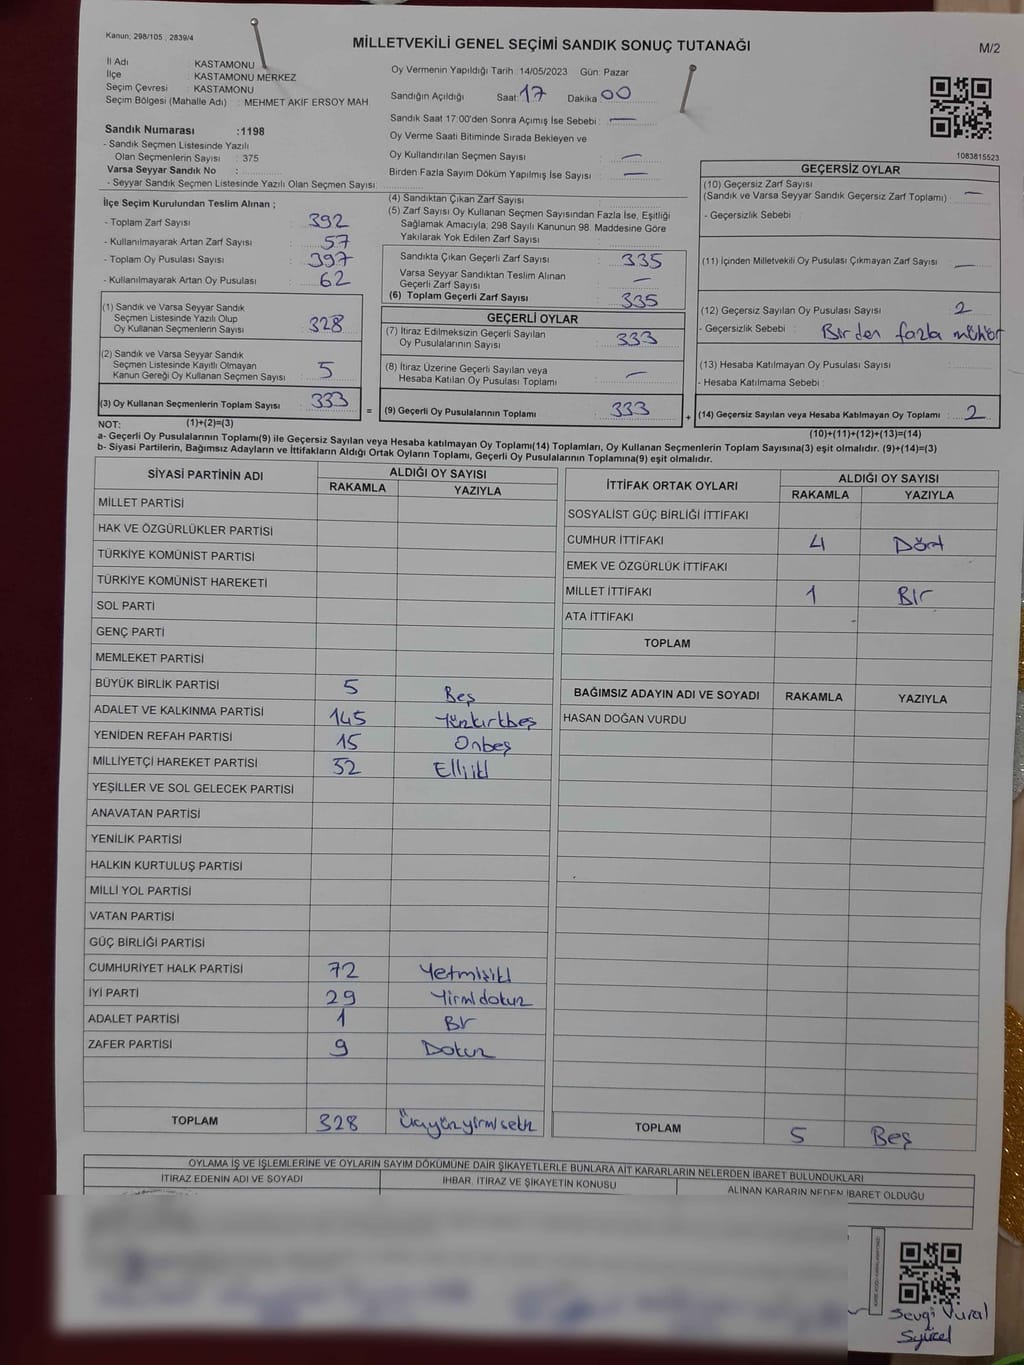 Kanun; 298/105 , 2839/4
MİLLETVEKİLİ GENEL SEÇİMİ SANDIK SONUÇ TUTANAĞI
M/2
İl Adı : KASTAMONU
İlçe : KASTAMONU MERKEZ
Seçim Çevresi : KASTAMONU
Seçim Bölgesi (Mahalle Adı) : MEHMET AKİF ERSOY MAH.
Sandık Numarası :1198
- Sandık Seçmen Listesinde Yazılı
Olan Seçmenlerin Sayısı : 375
Varsa Seyyar Sandık No :
- Seyyar Sandık Seçmen Listesinde Yazılı Olan Seçmen Sayısı:
Oy Vermenin Yapıldığı Tarih :14/05/2023 Gün: Pazar
Sandığın Açıldığı Saat: 17 Dakika 00
Sandık Saat 17:00'den Sonra Açımış İse Sebebi : —
Oy Verme Saati Bitiminde Sırada Bekleyen ve
Oy Kullandırılan Seçmen Sayısı : —
Birden Fazla Sayım Döküm Yapılmış İse Sayısı : —
1083815523
İlçe Seçim Kurulundan Teslim Alınan ;
- Toplam Zarf Sayısı : 392
- Kullanılmayarak Artan Zarf Sayısı : 57
- Toplam Oy Pusulası Sayısı : 397
- Kullanılmayarak Artan Oy Pusulası : 62
(1) Sandık ve Varsa Seyyar Sandık
Seçmen Listesinde Yazılı Olup
Oy Kullanan Seçmenlerin Sayısı : 328
(2) Sandık ve Varsa Seyyar Sandık
Seçmen Listesinde Kayıtlı Olmayan
Kanun Gereği Oy Kullanan Seçmen Sayısı : 5
(3) Oy Kullanan Seçmenlerin Toplam Sayısı : 333
(1)+(2)=(3)
(4) Sandıktan Çıkan Zarf Sayısı :
(5) Zarf Sayısı Oy Kullanan Seçmen Sayısından Fazla İse, Eşitliği
Sağlamak Amacıyla; 298 Sayılı Kanunun 98. Maddesine Göre
Yakılarak Yok Edilen Zarf Sayısı :
Sandıkta Çıkan Geçerli Zarf Sayısı : 335
Varsa Seyyar Sandıktan Teslim Alınan
Geçerli Zarf Sayısı : —
(6) Toplam Geçerli Zarf Sayısı : 335
GEÇERLİ OYLAR
(7) İtiraz Edilmeksizin Geçerli Sayılan
Oy Pusulalarının Sayısı : 333
(8) İtiraz Üzerine Geçerli Sayılan veya
Hesaba Katılan Oy Pusulası Toplamı : —
= (9) Geçerli Oy Pusulalarının Toplamı : 333
GEÇERSİZ OYLAR
(10) Geçersiz Zarf Sayısı
(Sandık ve Varsa Seyyar Sandık Geçersiz Zarf Toplamı) : —
- Geçersizlik Sebebi :
(11) İçinden Milletvekili Oy Pusulası Çıkmayan Zarf Sayısı : —
(12) Geçersiz Sayılan Oy Pusulası Sayısı : 2
- Geçersizlik Sebebi : Birden fazla mühür
(13) Hesaba Katılmayan Oy Pusulası Sayısı :
- Hesaba Katılmama Sebebi :
+ (14) Geçersiz Sayılan veya Hesaba Katılmayan Oy Toplamı : 2
(10)+(11)+(12)+(13)=(14)
NOT:
a- Geçerli Oy Pusulalarının Toplamı(9) ile Geçersiz Sayılan veya Hesaba katılmayan Oy Toplamı(14) Toplamları, Oy Kullanan Seçmenlerin Toplam Sayısına(3) eşit olmalıdır. (9)+(14)=(3)
b- Siyasi Partilerin, Bağımsız Adayların ve İttifakların Aldığı Ortak Oyların Toplamı, Geçerli Oy Pusulalarının Toplamına(9) eşit olmalıdır.
SİYASİ PARTİNİN ADI ALDIĞI OY SAYISI
RAKAMLA YAZIYLA
MİLLET PARTİSİ
HAK VE ÖZGÜRLÜKLER PARTİSİ
TÜRKİYE KOMÜNİST PARTİSİ
TÜRKİYE KOMÜNİST HAREKETİ
SOL PARTİ
GENÇ PARTİ
MEMLEKET PARTİSİ
BÜYÜK BİRLİK PARTİSİ 5 Beş
ADALET VE KALKINMA PARTİSİ 145 Yüzkırkbeş
YENİDEN REFAH PARTİSİ 15 Onbeş
MİLLİYETÇİ HAREKET PARTİSİ 52 Elliiki
YEŞİLLER VE SOL GELECEK PARTİSİ
ANAVATAN PARTİSİ
YENİLİK PARTİSİ
HALKIN KURTULUŞ PARTİSİ
MİLLİ YOL PARTİSİ
VATAN PARTİSİ
GÜÇ BİRLİĞİ PARTİSİ
CUMHURİYET HALK PARTİSİ 72 Yetmişiki
İYİ PARTİ 29 Yirmidokuz
ADALET PARTİSİ 1 Bir
ZAFER PARTİSİ 9 Dokuz
TOPLAM 328 Üçyüzyirmisekiz
İTTİFAK ORTAK OYLARI ALDIĞI OY SAYISI
RAKAMLA YAZIYLA
SOSYALİST GÜÇ BİRLİĞİ İTTİFAKI
CUMHUR İTTİFAKI 4 Dört
EMEK VE ÖZGÜRLÜK İTTİFAKI
MİLLET İTTİFAKI 1 Bir
ATA İTTİFAKI
TOPLAM
BAĞIMSIZ ADAYIN ADI VE SOYADI RAKAMLA YAZIYLA
HASAN DOĞAN VURDU
TOPLAM 5 Beş
OYLAMA İŞ VE İŞLEMLERİNE VE OYLARIN SAYIM DÖKÜMÜNE DAİR ŞİKAYETLERLE BUNLARA AİT KARARLARIN NELERDEN İBARET BULUNDUKLARI
İTİRAZ EDENİN ADI VE SOYADI İHBAR, İTİRAZ VE ŞİKAYETİN KONUSU ALINAN KARARIN NEDEN İBARET OLDUĞU
Sevgi Vural